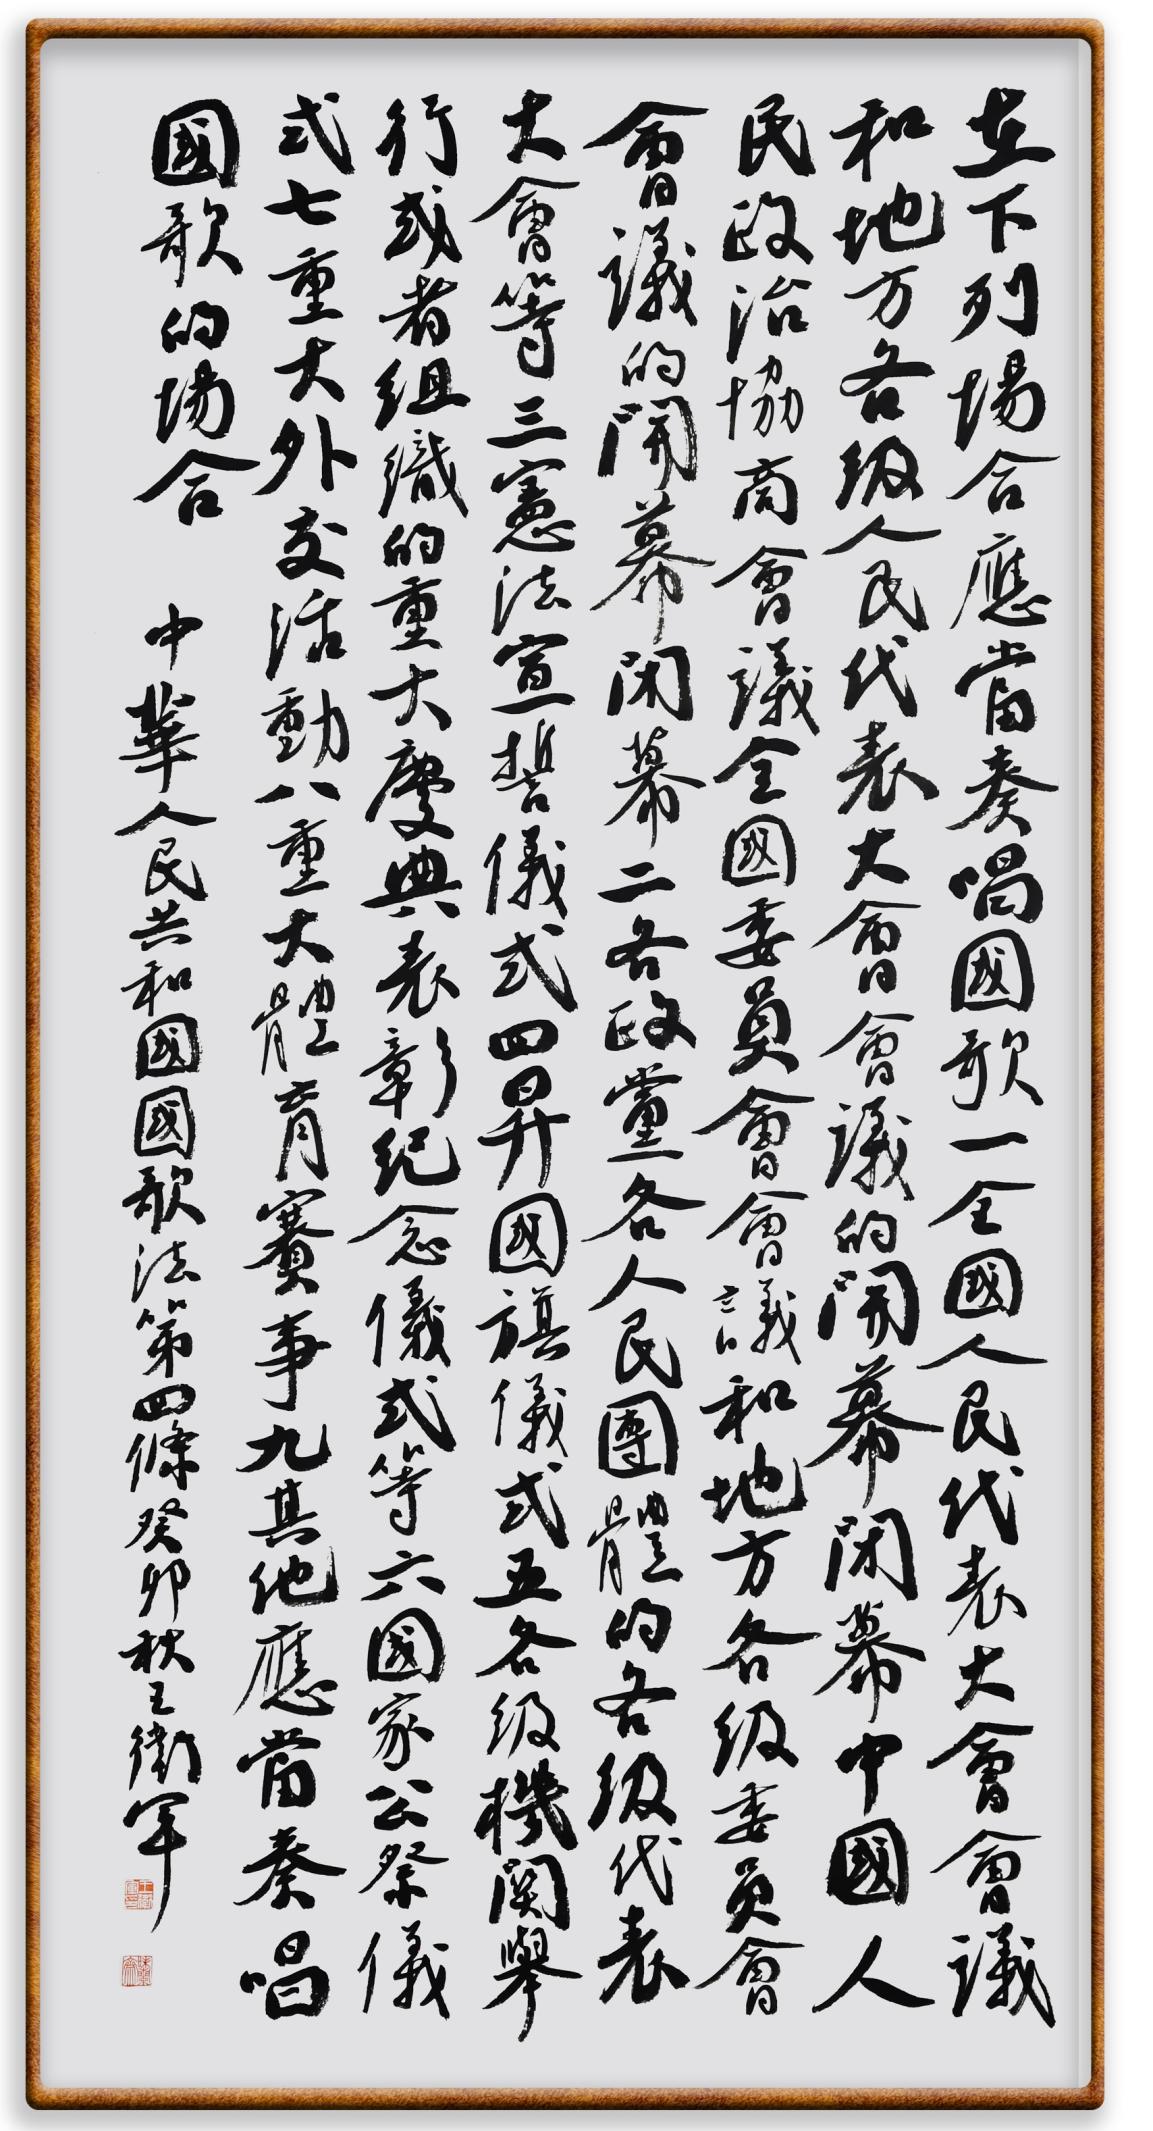 在下列場合應當奏唱國歌一全國人民代表大會會議
和地方各级人民代表大會會議的開幕閉幕中國人
民政治協商會議全國委員會會議和地方各级委員會
會議的開幕閉幕二各政黨各人民團體的各级代表
大會等三憲法宣誓儀式四昇國旗儀式五各级機関舉
行或者組織的重大慶典表彰纪念儀式等六國家公祭儀
式七重大外交活動八重大體育賽事九其他應當奏唱
國歌的場合
中華人民共和國國歌法第四條癸卯秋王衛軍